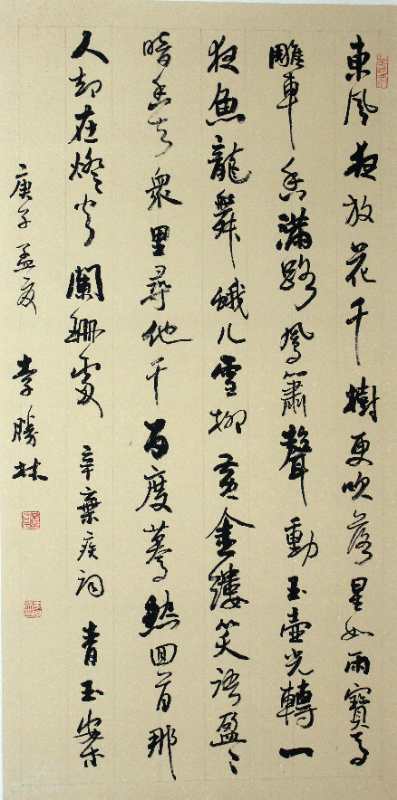 東風夜放花千樹更吹落星如雨寶馬
雕車香滿路鳳簫聲動玉壺光轉一
夜魚龍舞蛾儿雪柳黃金縷笑語盈〻
暗香去衆里尋他千百度驀然回首那
人却在燈火闌珊處 辛棄疾詞 青玉案
庚子孟夏 李勝林